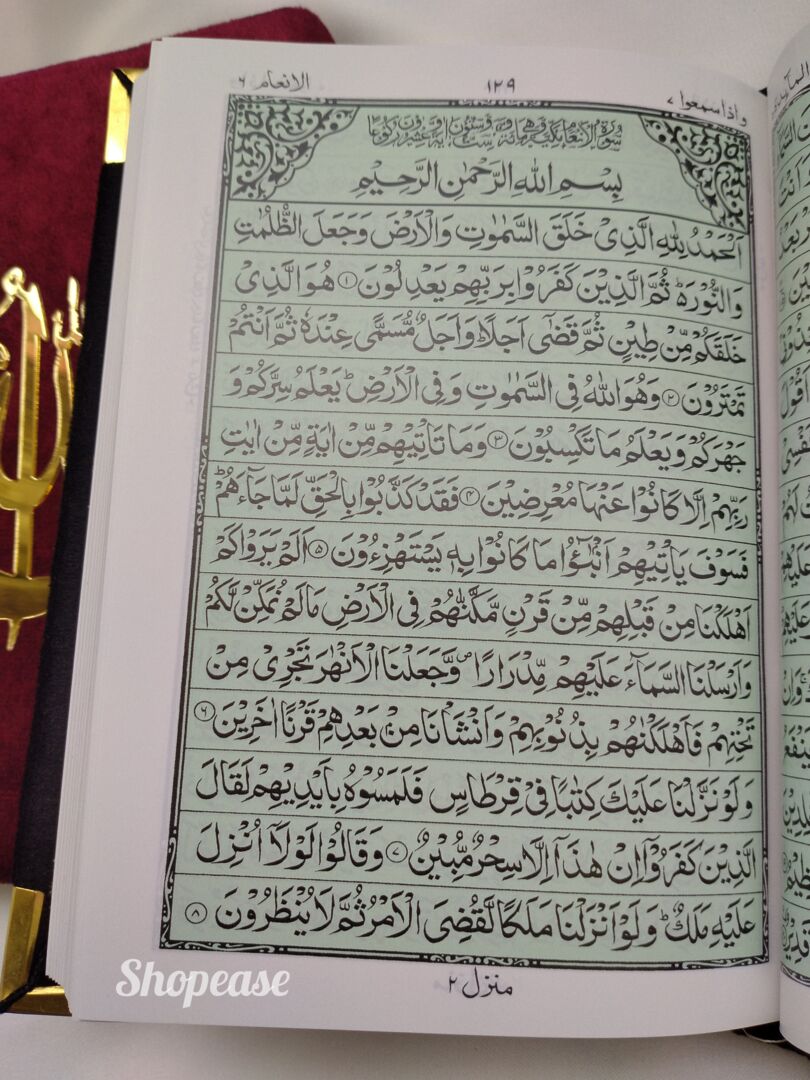 الانعام ٦
١٢٩
واذاسمعوا ٧
بِسْمِ اللهِ الرَّحْمٰنِ الرَّحِيْمِ
اَلْحَمْدُ لِلّٰهِ الَّذِىْ خَلَقَ السَّمٰوٰتِ وَالْاَرْضَ وَجَعَلَ الظُّلُمٰتِ
وَالنُّوْرَ ؕ ثُمَّ الَّذِيْنَ كَفَرُوْا بِرَبِّهِمْ يَعْدِلُوْنَ ۝١ هُوَ الَّذِىْ
خَلَقَكُمْ مِّنْ طِيْنٍ ثُمَّ قَضٰۤى اَجَلًا ؕ وَاَجَلٌ مُّسَمًّى عِنْدَهٗ ثُمَّ اَنْتُمْ
تَمْتَرُوْنَ ۝٢ وَهُوَ اللهُ فِى السَّمٰوٰتِ وَفِى الْاَرْضِ ؕ يَعْلَمُ سِرَّكُمْ وَ
جَهْرَكُمْ وَيَعْلَمُ مَا تَكْسِبُوْنَ ۝٣ وَمَا تَاْتِيْهِمْ مِّنْ اٰيَةٍ مِّنْ اٰيٰتِ
رَبِّهِمْ اِلَّا كَانُوْا عَنْهَا مُعْرِضِيْنَ ۝٤ فَقَدْ كَذَّبُوْا بِالْحَقِّ لَمَّا جَآءَهُمْ ؕ
فَسَوْفَ يَاْتِيْهِمْ اَنْۢبٰٓؤُا مَا كَانُوْا بِهٖ يَسْتَهْزِءُوْنَ ۝٥ اَلَمْ يَرَوْا كَمْ
اَهْلَكْنَا مِنْ قَبْلِهِمْ مِّنْ قَرْنٍ مَّكَّنّٰهُمْ فِى الْاَرْضِ مَا لَمْ نُمَكِّنْ لَّكُمْ
وَاَرْسَلْنَا السَّمَآءَ عَلَيْهِمْ مِّدْرَارًا ۪ وَّجَعَلْنَا الْاَنْهٰرَ تَجْرِىْ مِنْ
تَحْتِهِمْ فَاَهْلَكْنٰهُمْ بِذُنُوْبِهِمْ وَاَنْشَاْنَا مِنْۢ بَعْدِهِمْ قَرْنًا اٰخَرِيْنَ ۝٦
وَلَوْ نَزَّلْنَا عَلَيْكَ كِتٰبًا فِىْ قِرْطَاسٍ فَلَمَسُوْهُ بِاَيْدِيْهِمْ لَقَالَ
الَّذِيْنَ كَفَرُوْۤا اِنْ هٰذَاۤ اِلَّا سِحْرٌ مُّبِيْنٌ ۝٧ وَقَالُوْا لَوْلَاۤ اُنْزِلَ
عَلَيْهِ مَلَكٌ ؕ وَلَوْ اَنْزَلْنَا مَلَكًا لَّقُضِىَ الْاَمْرُ ثُمَّ لَا يُنْظَرُوْنَ ۝٨
منزل ٢
Shopease